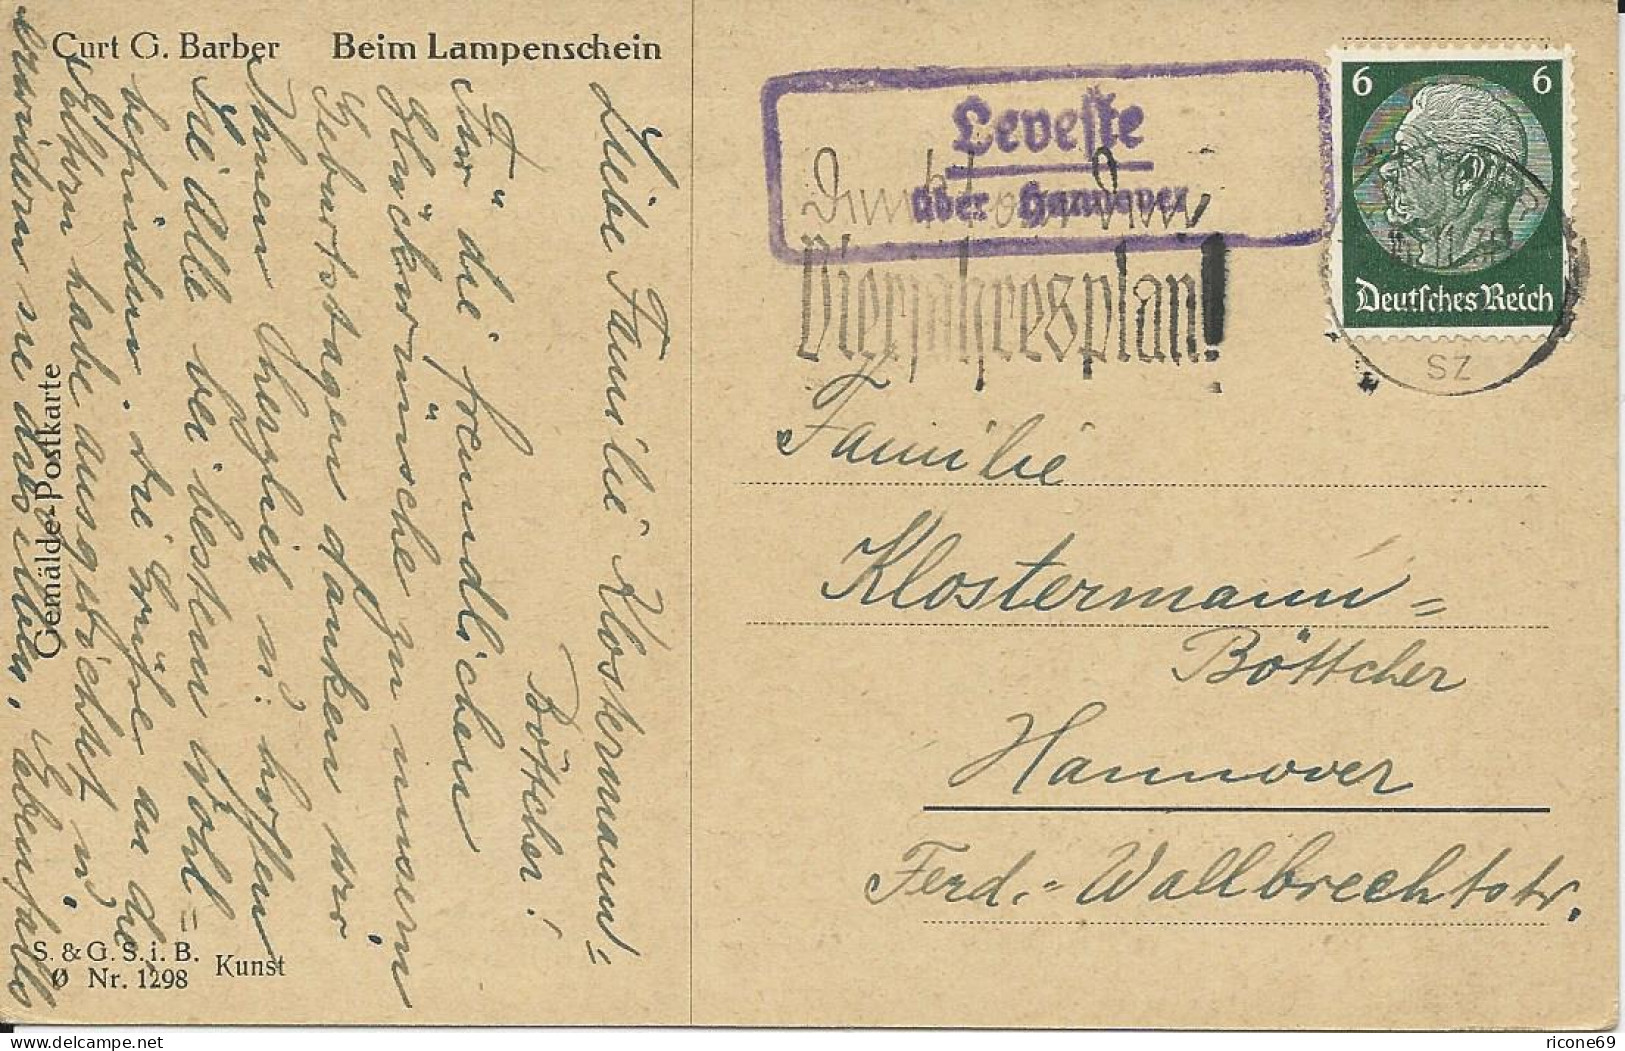 Curt G. Barber Beim Lampenschein
Liebe Familie Klostermann=
Böttcher!
Für die freundlichen
Glückwünsche zu unsern
Geburtstagen danken wir
Ihnen herzlich u. hoffen
Sie Alle bei bestem Wohl=
befinden. Die Grüße an die
Eltern habe ausgerichtet u.
erwidern sie dieselben, Ebenfalls
Gemälde-Postkarte
S. & G. S. i. B.
Ø Nr. 1298
Kunst
Leveste
über Hannover
Vierjahresplan!
6 6
Deutsches Reich
SZ
Familie
Klostermann=
Böttcher
Hannover
Ferd.=Wallbrechtstr.
delcampe.net
ricone69